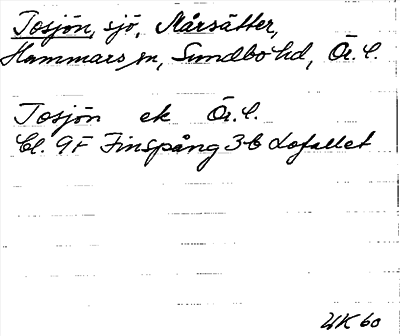 Tosjön, sjö, Mårsätter,
Hammars sn, Sundbo hd, Ör. l.
Tosjön ek Ör. l.
Bl. 9F Finspång 3b Lofallet
UK 60